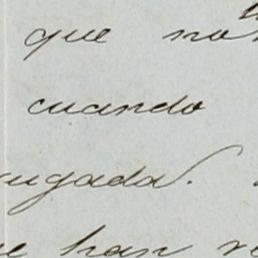 que no
cuando
ugada.
han